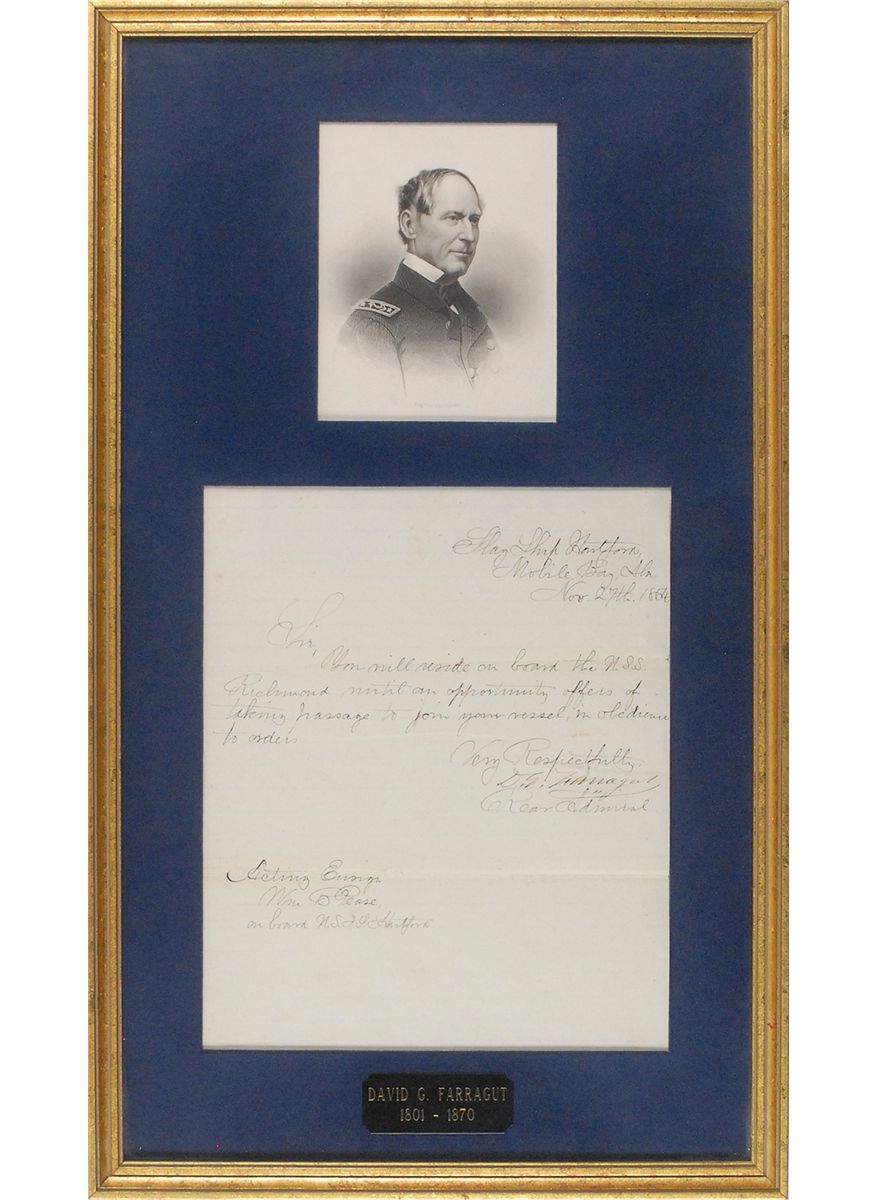 Flag Ship Hartford,
Mobile Bay, Ala.
Nov. 27th. 1864
Sir,
You will reside on board the U.S.S.
Richmond until an opportunity offers of
taking passage to join your vessel, in obedience
to orders
Very Respectfully,
D. G. Farragut
Rear Admiral
Acting Ensign
Wm D Pease,
on board U.S.F.S. Hartford
DAVID G. FARRAGUT
1801 - 1870